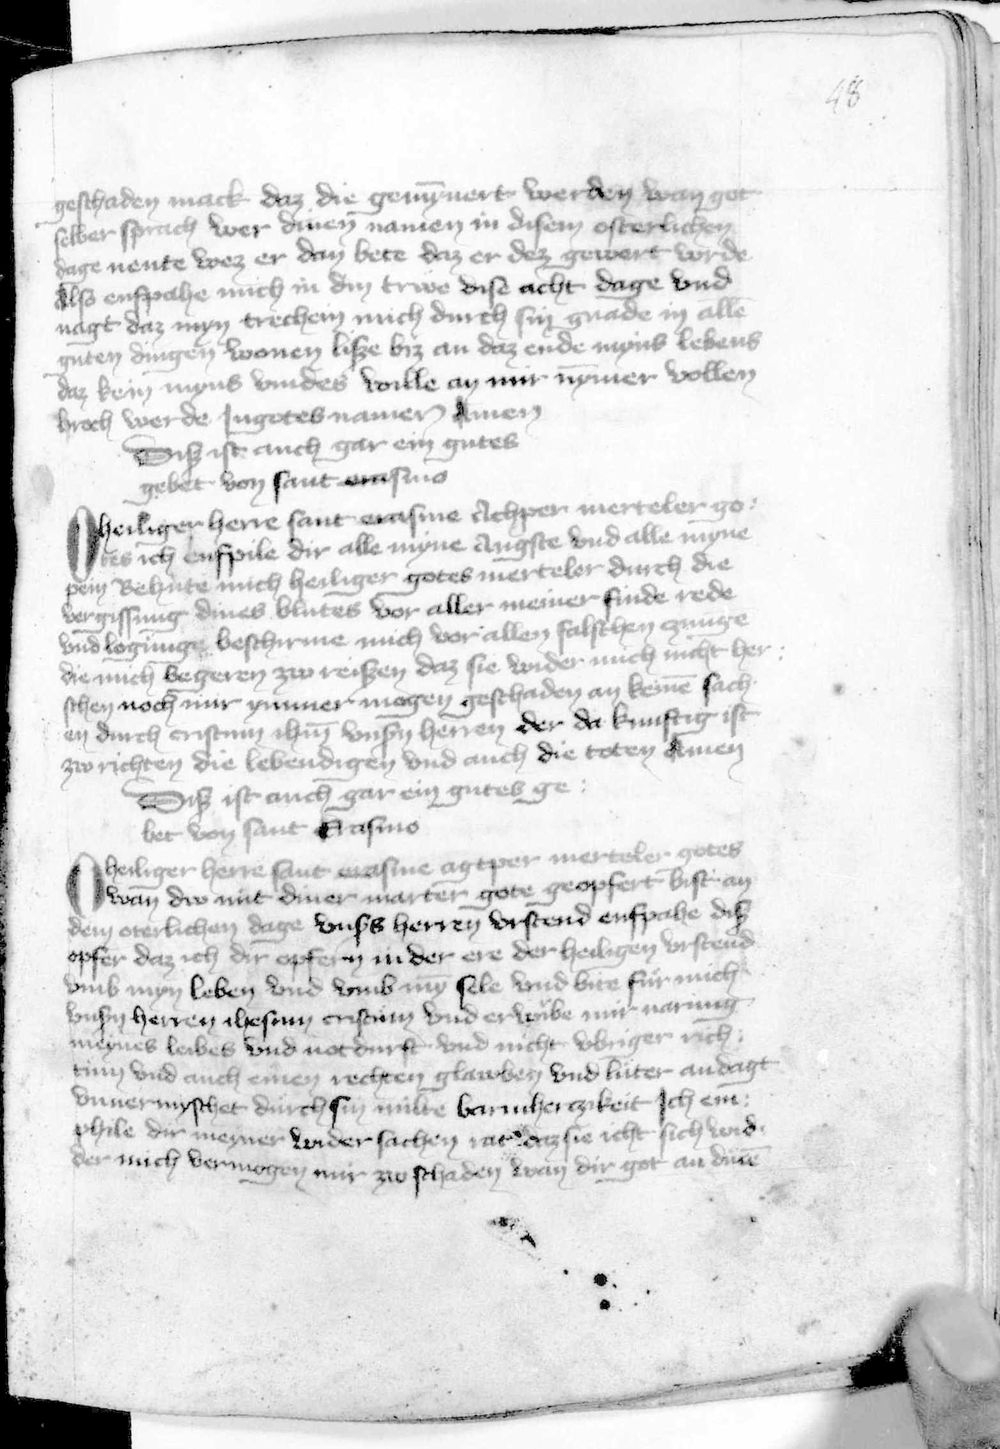 48
geschaden mack daz die gemỹnert werden wan got
selber sprach wer dinen namen in disem osterlichen
dage nente wez er dan bete daz er dez gewert wrde
Also enfpahe mich in din triwe dise acht dage vnd
nagt daz myn trechein mich durch sin gnade in alle
guten dingen wonen lisze biz an daz ende myns lebens
daz kein myns vindes wille an mir nymer vollen
broch werde In gotes namen Amen
Disz ist auch gar ein gutes
gebet von sant erasmo
O heiliger herre sant erasme Achper merteler go:
tes ich enfpile dir alle myne Angste vnd alle myne
pein Behute mich heiliger gotes merteler durch die
vergissung dines blutes vor aller meiner finde rede
vnd beschirme mich vor allen falschen czunge
die mich begeren zw reiszen daz sie wider mich nicht her:
schen noch mir ymmer mogen geschaden an keine sach
en durch cristum ihm vnsn herren der da kunftig ist
zw richten die lebendigen vnd auch die toten Amen
Disz ist auch gar ein gutes ge:
bet von sant Erasmo
O heiliger herre sant erasme agtper merteler gotes
wan dw mit diner marter gote geopfert bist an
dem oterlichen dage vnsers herren vrstend enfpahe disz
opfer daz ich dir opfern in der ere der heiligen vrstend
vmb myn leben vnd vmb my sele vnd bite für mich
vnsn herren ihesum cristum vnd erwibe mir narung
meynes leibes vnd notdurft vnd nicht vbriger rich:
tum vnd auch einen rechten glawben vnd luter andagt
vnuermyschet durch sin milte barmherczikeit Ich em:
phile dir meyner wider sachen rat daz sie icht sich wid
der mich vermogen mir zw schaden wan dir got an dine